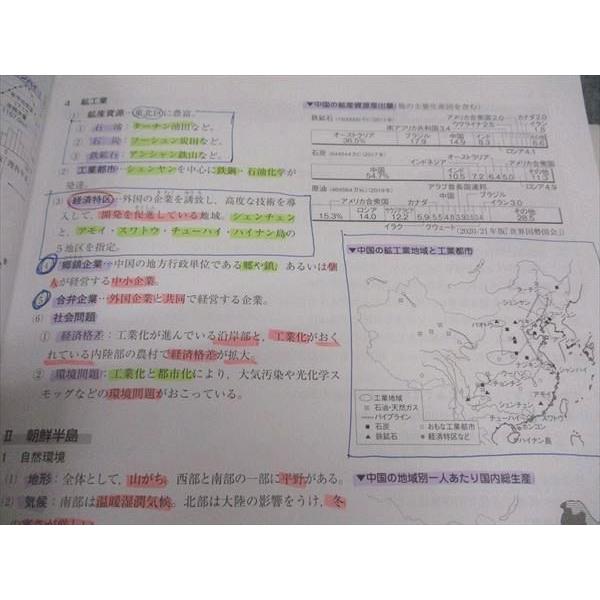 4 鉱工業
(1) 鉱産資源…東北区に豊富。
① 石油：ターチン油田など。
② 石炭：フーシュン炭田など。
③ 鉄鉱石：アンシャン鉄山など。
(2) 工業都市…シェンヤンを中心に鉄鋼・石油化学が
発達。
(3) 経済特区…外国の企業を誘致し、高度な技術を導
入して、開発を促進している地域。シェンチェン
と、アモイ・スワトウ・チューハイ・ハイナン島の
5地区を指定。
(4) 郷鎮企業…中国の地方行政単位である郷や鎮、あるいは個
人が経営する中小企業。
(5) 合弁企業…外国企業と共同で経営する企業。
(6) 社会問題
① 経済格差：工業化が進んでいる沿岸部と、工業化がおく
れている内陸部の農村で経済格差が拡大。
② 環境問題：工業化と都市化により、大気汚染や光化学ス
モッグなどの環境問題がおこっている。
Ⅱ 朝鮮半島
1 自然環境
(1) 地形：全体として、山がち。西部と南部の一部に平野がある。
(2) 気候：南部は温暖湿潤気候。北部は大陸の影響をうけ、冬
▼中国の鉱産資源産出量(他の主要生産国を含む)
鉄鉱石
アメリカ合衆国2.0 カナダ2.0
南アフリカ共和国3.4 ウクライナ2.5 イラン
オーストラリア ブラジル 中国 インド ロシア その他
36.5% 17.9 14.9 8.3
石炭
アメリカ合衆国 ロシア4.1
インドネシア オーストラリア
中国 インド その他
54.7% 10.5 7.2 6.4 5.0 11.3
原油
アラブ首長国連邦 ロシア4.9
アメリカ合衆国 カナダ 中国 イラン3.0
ロシア サウジアラビア その他
15.3% 14.0 12.2 28.5
イラク クウェート (2020/21年版『世界国勢図会』)
▼中国の鉱工業地域と工業都市
ターチン
シェンヤン
パオトウ
ウーハン
アモイ
シェンチェン
スワトウ
チューハイ
ハイナン島
工業地域
石油・天然ガス
パイプライン
石炭
鉄鉱石
おもな工業都市
経済特区など
▼中国の地域別一人あたり国内総生産